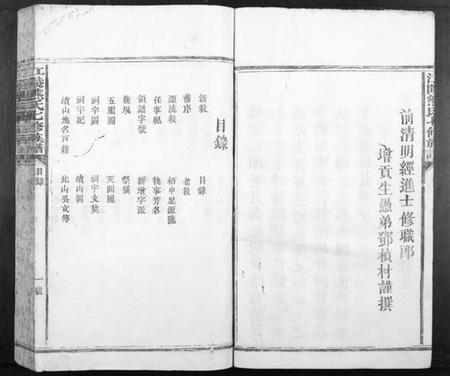 前清明經進士修職郎
增貢生愚弟鄧楨材謹撰
目錄
新敘 目錄
舊序 老敘
源流敘
任事紀 執事芳名
領譜字號 新增字派
族規 祭儀
五服圖 天面圖
祠宇圖 祠宇文契
祠宇記 墳山圖
墳山地名戶籍
氏七修族譜
目錄
一號